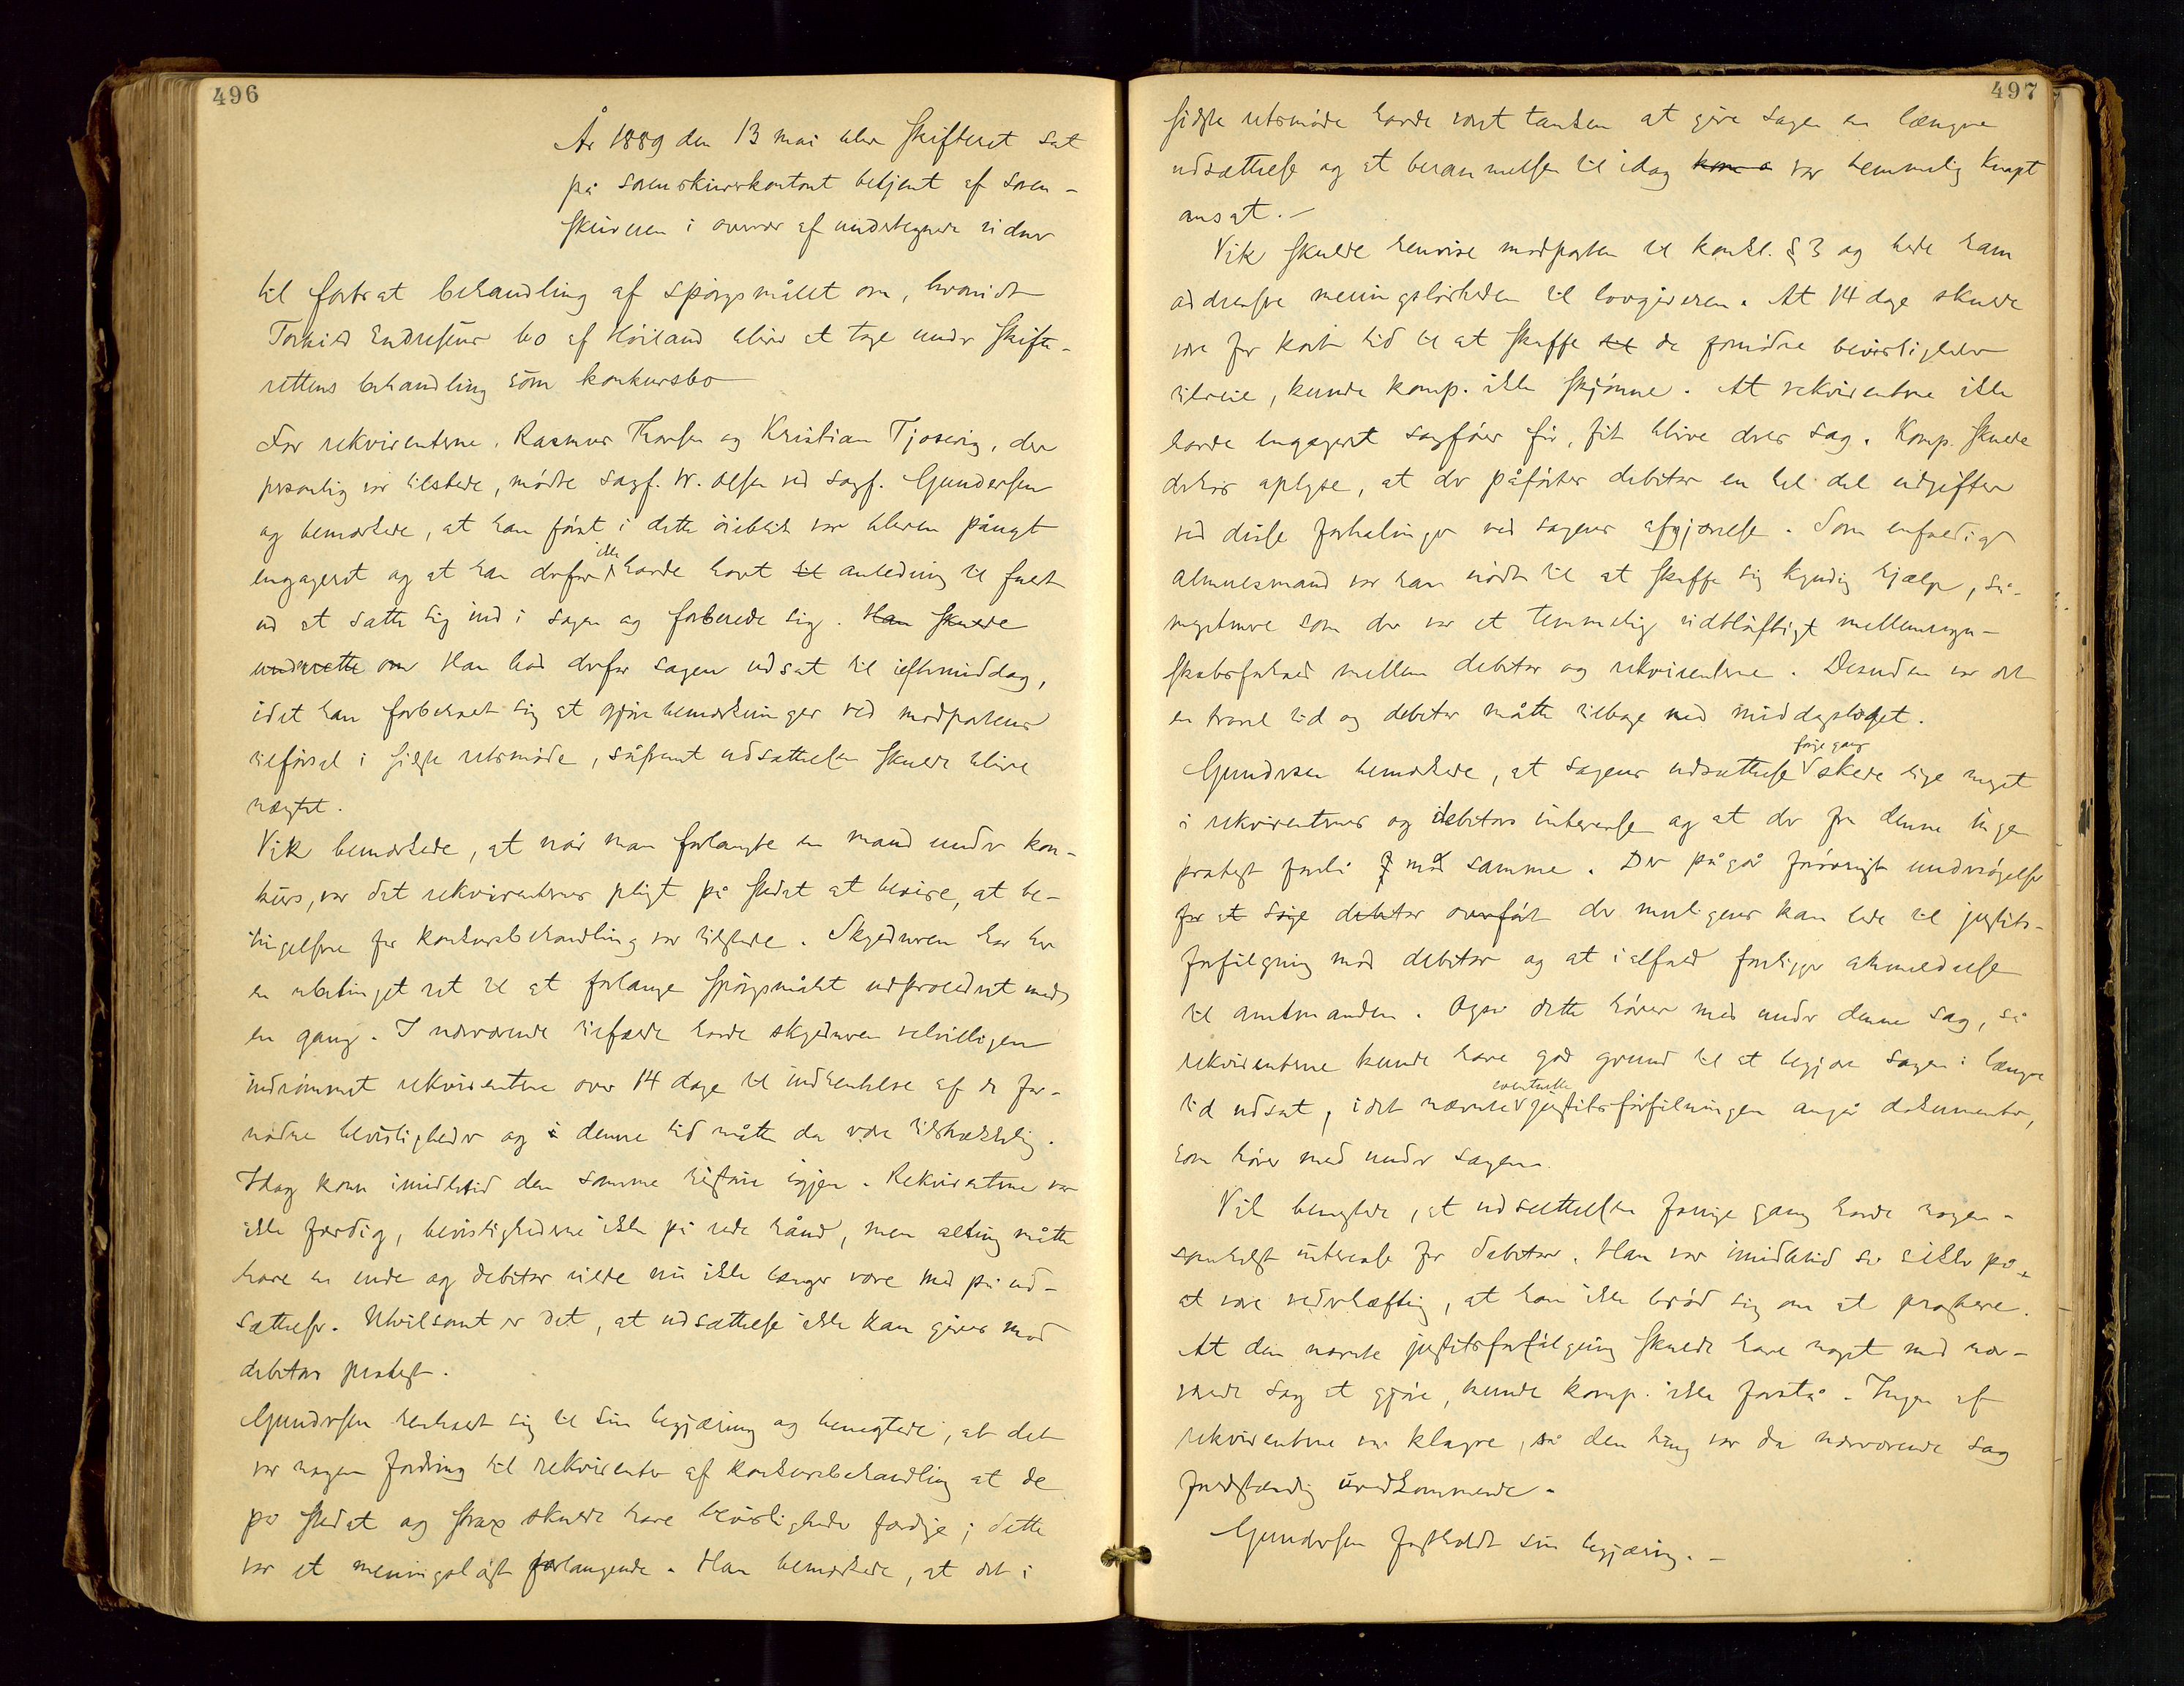 496
År 1889 den 13 mai blev skifteret sat
på sorenskriverkontoret betjent af soren-
skriveren i overvær af undertegnede vidner
til fortsat behandling af spørgsmålet om, hvorvidt
Torkild Endresens bo af Höiland bliver at tage under skifte-
rettens behandling som konkursbo
For rekvirenterne, Rasmus Thorsen og Kristian Tjosevig, der
personlig var tilstede, mødte sagf. W. Olsen ved sagf. Gundersen
og bemærkede, at han først i dette öieblik var bleven pånyt
engageret og at han derfor ikke havde havt til anledning til fuldt
ud at sætte sig ind i sagen og forberede sig. Han skulde
underrette om Han bad derfor sagen udsat til ieftermiddag,
idet han forbeholdt sig at gjøre bemærkninger ved modpartens
tilførsel i sidste retsmøde, såfremt udsættelsen skulde blive
nægtet.
Vik bemærkede, at når man forlangte en mand under kon-
kurs, var det rekvirenternes pligt på stedet at bevise, at be-
tingelserne for konkursbehandling var tilstede. Skyldneren har her
en ubetinget ret til at forlange spørgsmålet udprocederet med
en gang. I nærværende tilfælde havde skyldneren velvilligen
indrømmet rekvirenterne over 14 dage til indhentelse af de for-
nødne bevisligheder og i denne tid måtte da være tilstrækkelig.
Idag kom imidlertid den samme historie igjen. Rekvirenterne var
ikke færdig, bevislighederne ikke på rede hånd, men alting måtte
have en ende og debitor vilde nu ikke længer være med på ud-
sættelser. Utvilsomt er det, at udsættelse ikke kan gives mod
debitors protest.
Gundersen henholdt sig til sin begjæring og benegtede, at det
var nogen fordring til rekvirenter af konkursbehandling at de
på stedet og strax skulde have bevisligheder færdige; dette
var et meningsløst forlangende. Han bemærkede, at det i
497
sidste retsmøde havde været tanken at give sagen en længere
udsættelse og at berammelsen til idag kom a var temmelig knapt
ansat.-
Vik skulde henvise modparten til konkl. § 3 og bede ham
addressere meningsløsheden til lovgiveren. At 14 dage skulde
være for kort tid til at skaffe til de fornødne bevisligheder
tilveie, kunde komp. ikke skjønne. At rekvirenterne ikke
havde engageret sagfører før, fik blive deres sag. Komp. skulde
derhos oplyse, at der påførtes debitor en hel del udgifter
ved disse forhalinger ved sagens afgjørelse. Som enfoldig
almuesmand var han nødt til at skaffe sig kyndig hjælp, så-
megetmere som der var et temmelig vidtløftigt mellemregn-
skabsforhold mellem debitor og rekvirenterne. Desuden var det
en travel tid og debitor måtte tilbage med middagstoget.
Gundersen bemærkede, at sagens udsættelse forrige gang skede lige meget
i rekvirenternes og debitors interesse og at der fra denne ingen
protest forelå mod samme. Der pågår forøvrigt undersøgelse
for at søge debitor overført der muligens kan lede til justits-
forfølgning mod debitor og at ialfald foreligger anmeldelse
til amtmanden. Også dette hører med under denne sag, så
rekvirenterne kunde have god grund til at begjære sagen i længere
tid udsat, idet nævnte eventuelle justitsforfølgningen angår dokumenter,
som hører med under sagen.
Vik benegtede, at udsættelsen forrige gang havde nogen-
somhelst interesse for debitor. Han var imidlertid så sikker på
at være vederhæftig, at han ikke brød sig om at protestere.
At den nævnte justitsforfølgning skulde have noget med nær-
værende sag at gjøre, kunde komp. ikke forstå. Ingen af
rekvirenterne var klagere, så den ting var da nærværende sag
fuldstændig uvedkommende.
Gundersen fastholdt sin begjæring.-